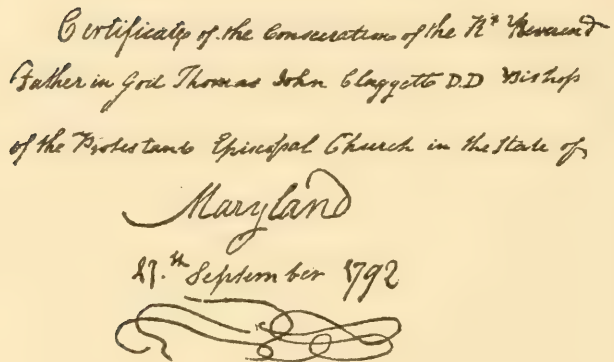 Certificate of the Consecration of the Rt Reverend
Father in God Thomas John Claggett D.D Bishop
of the Protestant Episcopal Church in the State of
Maryland
17.th September 1792